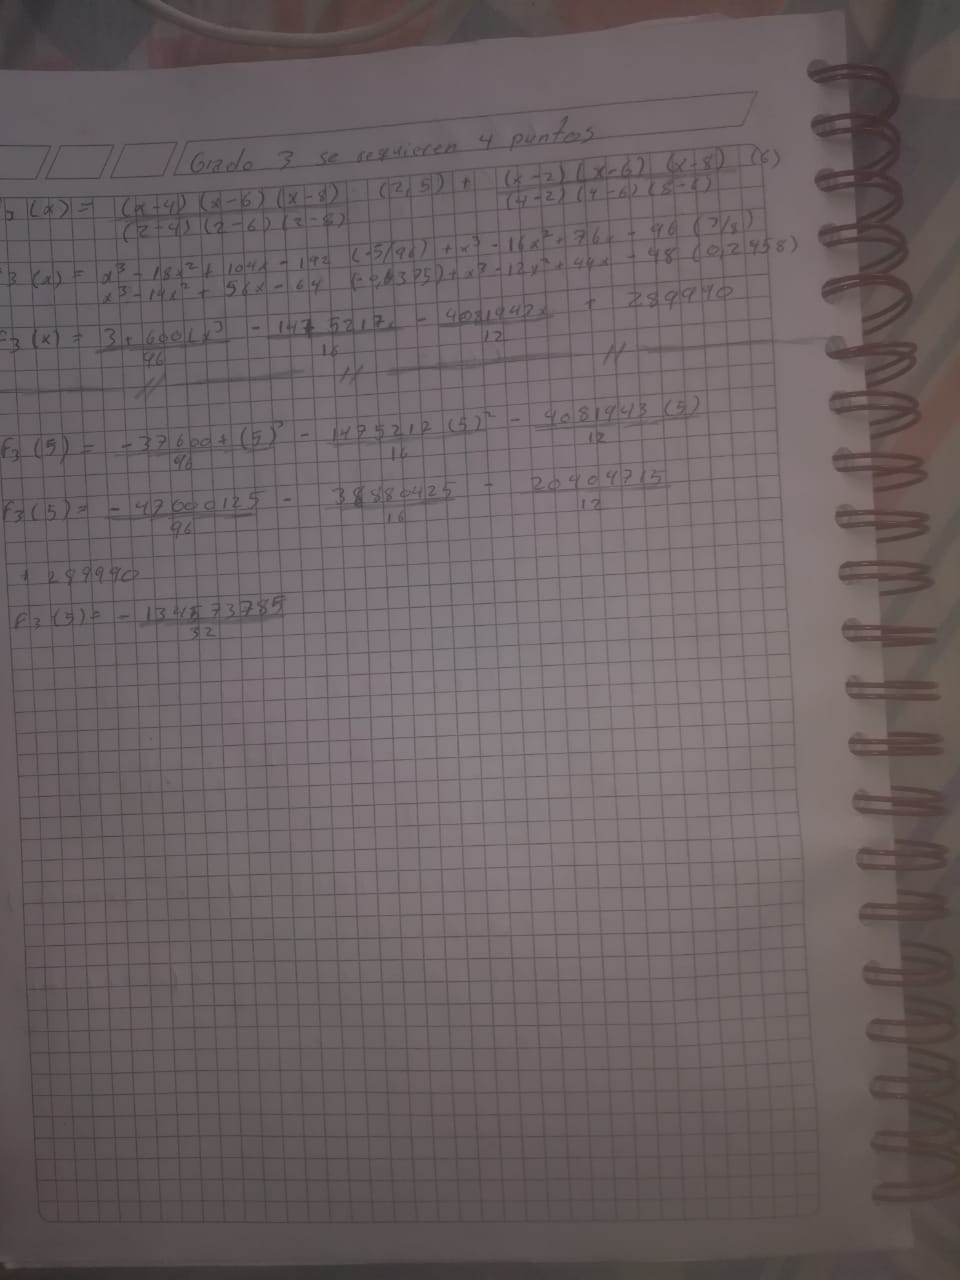 Grado 3 se requieren 4 puntos
(x) = (x-4) (x-6) (x-8) / (2-4) (2-6) (2-8) (2,5) + (x-2) (x-6) (x-8) / (4-2) (4-6) (8-6) (6)
3 (x) = x³ - 18x² + 104x - 192 (-5/96) + x³ - 16x² + 76x - 96 (3/8)
x³ - 14x² + 56x - 64 + x³ - 12x² + 44x - 48 (0,2458)
3 (x) = x³ / 96 - / 16 - 4081942x / 12 + 289990
F3 (5) = -37600+ (5)³ / 96 - 1475212 (5)² / 16 - 4081943 (5) / 12
F3 (5) = - 47000125 / 96 - 38880425 / 16 - 20404715 / 12
+ 289990
F3 (5) = - 134573785 / 32